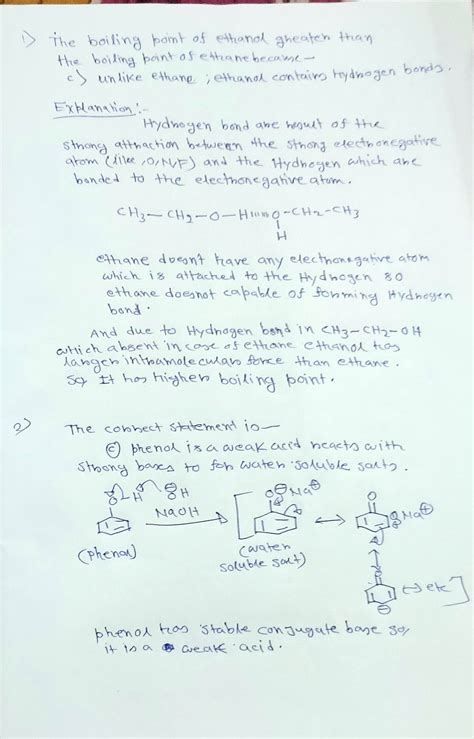 1) The boiling point of ethanol greater than
the boiling point of ethane because –
c) unlike ethane ; ethanol contains Hydrogen bonds.
Explanation :-
Hydrogen bond are result of the
strong attraction between the strong electronegative
atom (like ,O,N,F) and the Hydrogen which are
bonded to the electronegative atom.
CH3—CH2—O—H ııııı O—CH2—CH3
H
ethane doesn't have any electronegative atom
which is attached to the Hydrogen so
ethane doesnot capable of forming Hydrogen
bond.
And due to Hydrogen bond in CH3—CH2—OH
which absent in case of ethane ethanol has
larger intramolecular force than ethane.
So It has higher boiling point.
2) The correct statement is —
c) phenol is a weak acid reacts with
strong bases to for water soluble salts.
O H ⊖OH O⊖ Na⊕ O
NaOH ⊖ Na⊕
(phenol) (water
soluble salt)
O
⊖ ↔ etc]
phenol has stable conjugate base so,
it is a weak acid.